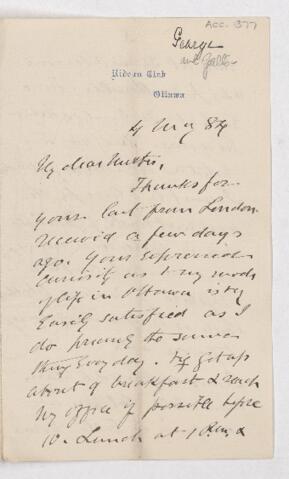 Acc. 377
George
Rideau Club
Ottawa
4 May 84
My dear
Thanks for
your last from London
received a few days
ago. Your expressed
curiosity as to my mode
of life in Ottawa is
easily satisfied as I
do the same
thing every day. get up
about 9 breakfast & reach
my office if possible before
10. Lunch at 1 &